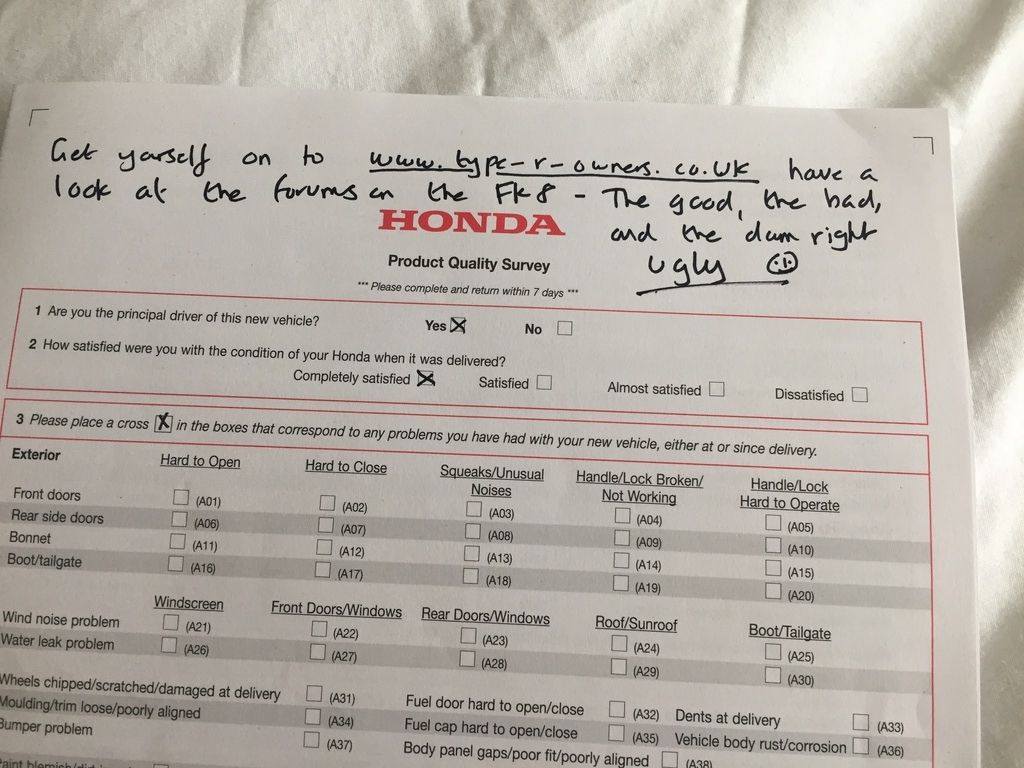 Get yourself on to www.type-r-owners.co.uk have a
look at the forums on the FK8 - The good, the bad,
and the dam right
ugly
HONDA
Product Quality Survey
*** Please complete and return within 7 days ***
1 Are you the principal driver of this new vehicle? Yes No
2 How satisfied were you with the condition of your Honda when it was delivered?
Completely satisfied Satisfied Almost satisfied Dissatisfied
3 Please place a cross X in the boxes that correspond to any problems you have had with your new vehicle, either at or since delivery.
Exterior Hard to Open Hard to Close Squeaks/Unusual Noises Handle/Lock Broken/ Not Working Handle/Lock Hard to Operate
Front doors (A01) (A02) (A03) (A04) (A05)
Rear side doors (A06) (A07) (A08) (A09) (A10)
Bonnet (A11) (A12) (A13) (A14) (A15)
Boot/tailgate (A16) (A17) (A18) (A19) (A20)
Windscreen Front Doors/Windows Rear Doors/Windows Roof/Sunroof Boot/Tailgate
Wind noise problem (A21) (A22) (A23) (A24) (A25)
Water leak problem (A26) (A27) (A28) (A29) (A30)
Wheels chipped/scratched/damaged at delivery (A31) Fuel door hard to open/close (A32) Dents at delivery (A33)
Moulding/trim loose/poorly aligned (A34) Fuel cap hard to open/close (A35) Vehicle body rust/corrosion (A36)
Bumper problem (A37) Body panel gaps/poor fit/poorly aligned (A38)